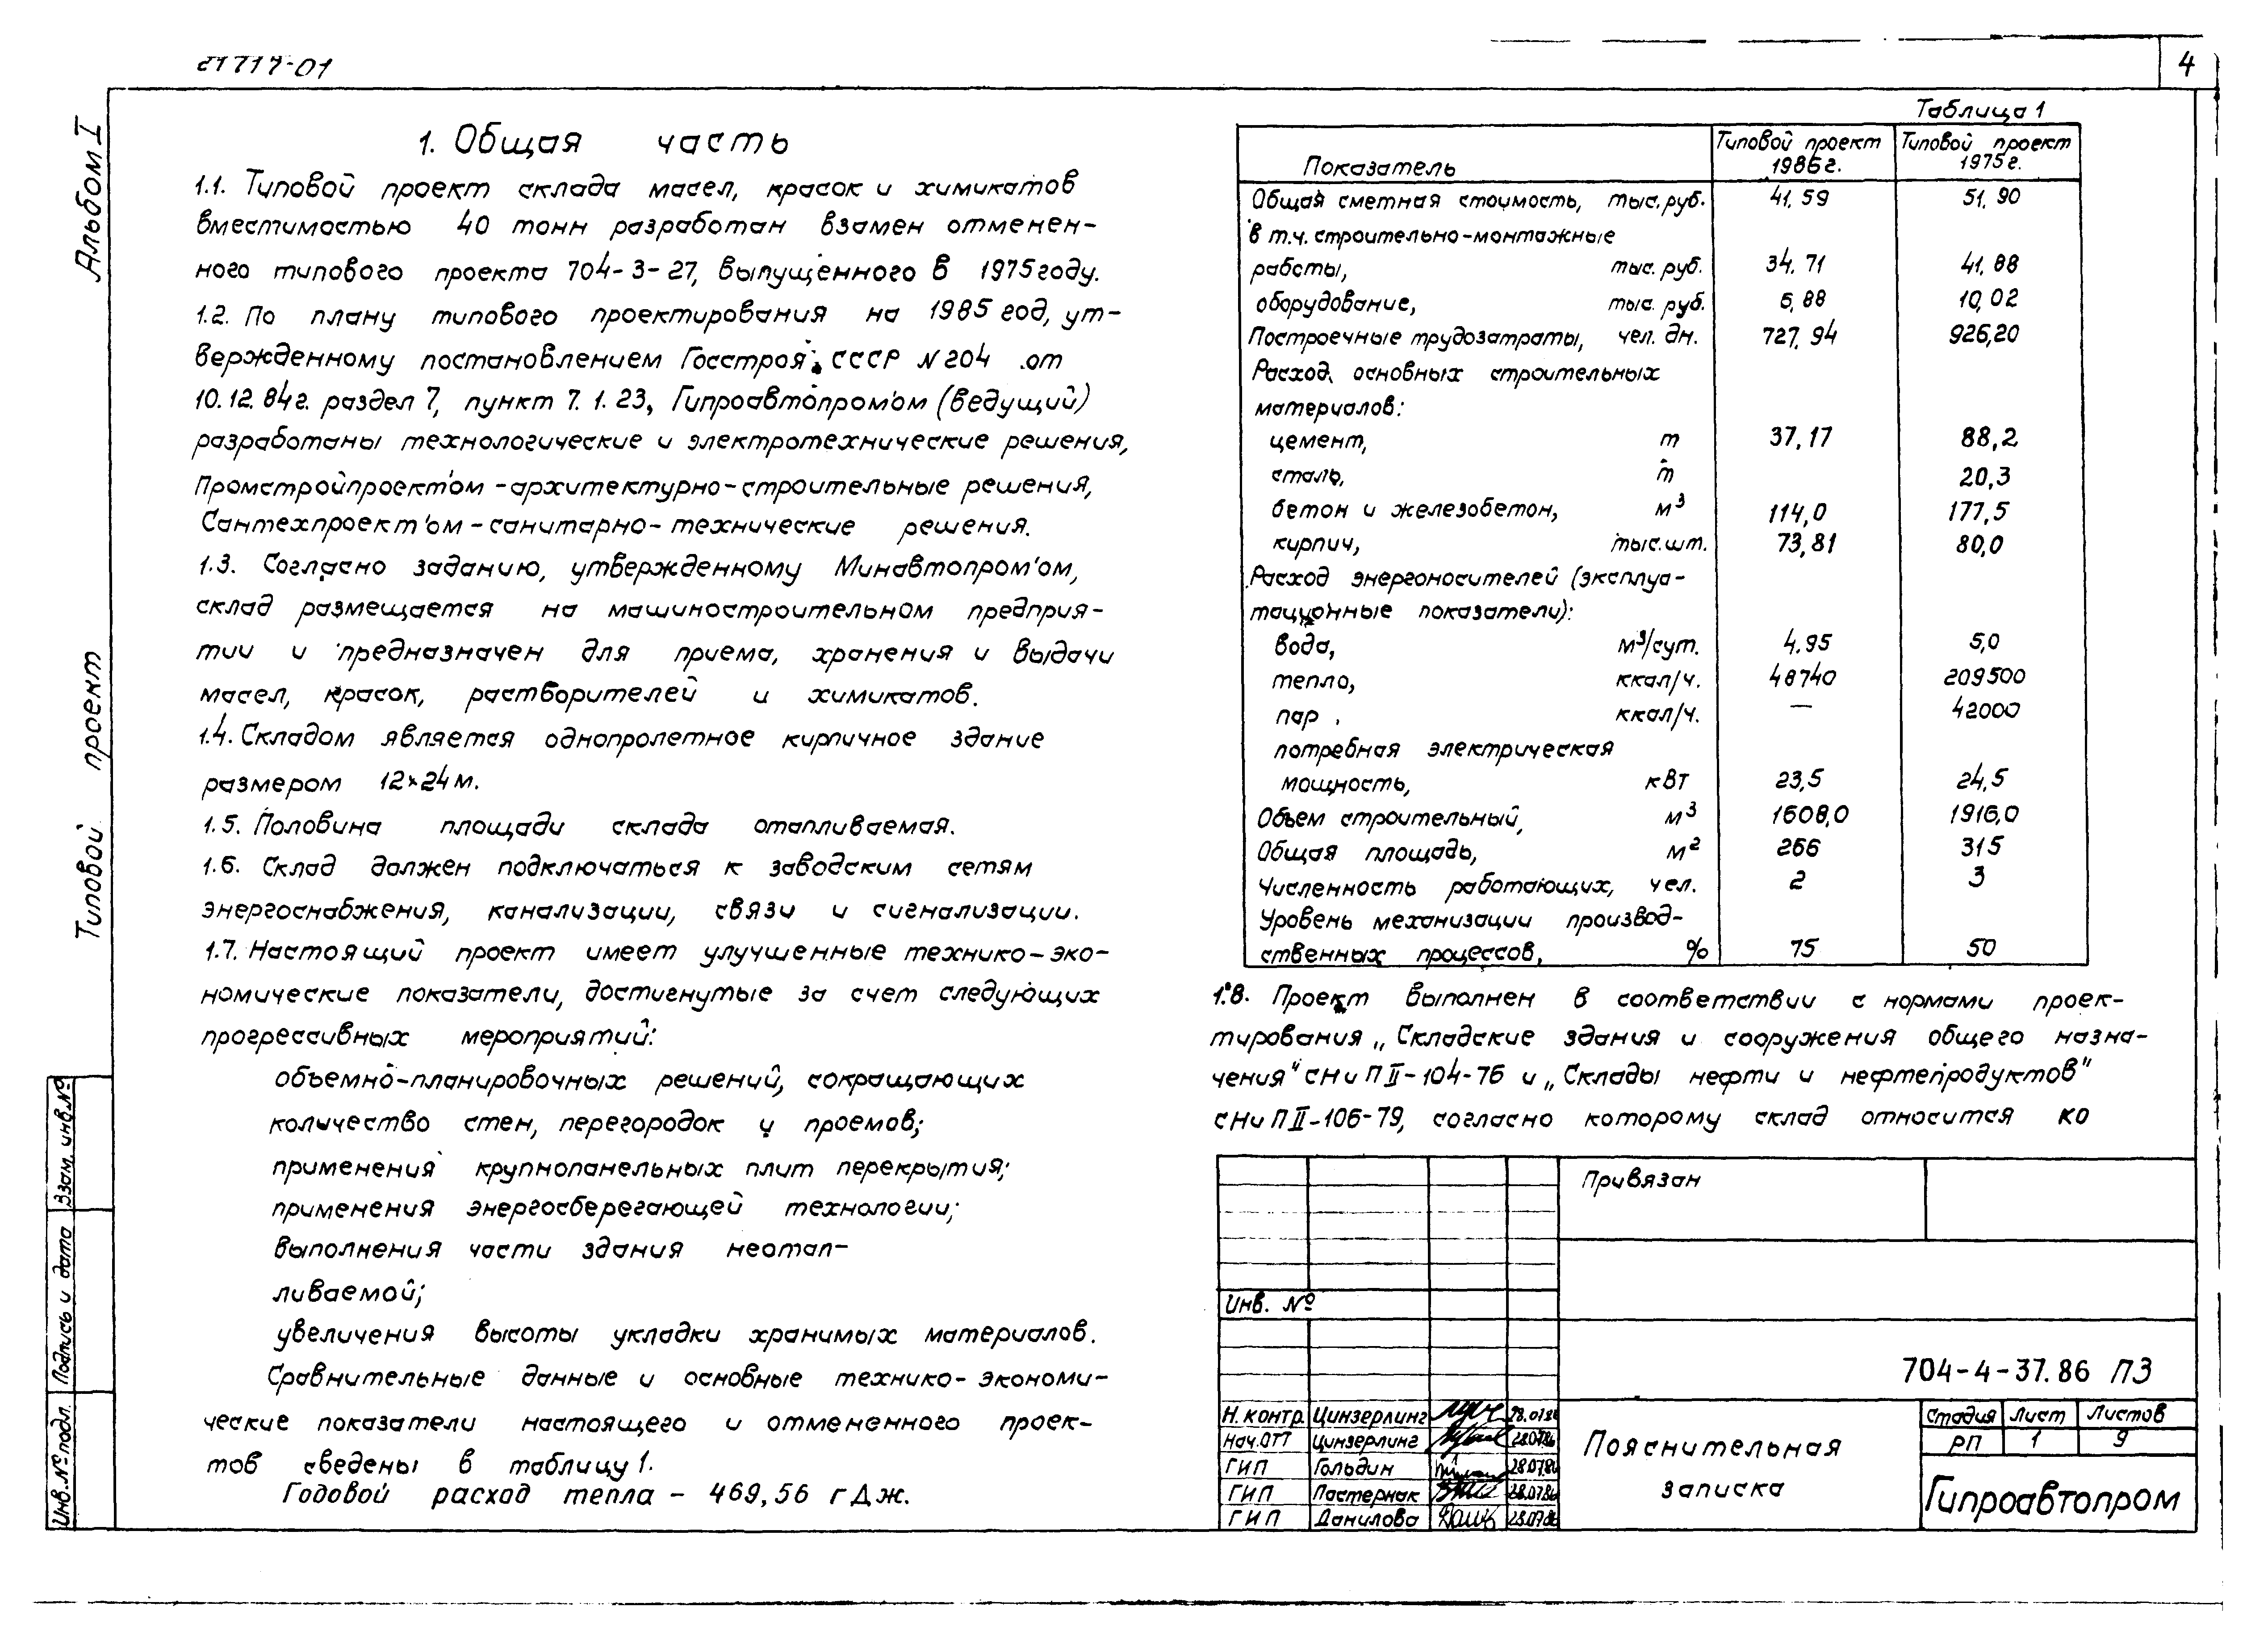 21717-01
4
Альбом I
Типовой проект
1. Общая часть
1.1. Типовой проект склада масел, красок и химикатов
вместимостью 40 тонн разработан взамен отменен-
ного типового проекта 704-3-27, выпущенного в 1975 году.
1.2. По плану типового проектирования на 1985 год, ут-
вержденному постановлением Госстроя СССР N 204 от
10.12.84г. раздел 7, пункт 7.1.23, Гипроавтопром'ом (ведущий)
разработаны технологические и электротехнические решения,
Промстройпроект'ом - архитектурно-строительные решения,
Сантехпроект'ом - санитарно-технические решения.
1.3. Согласно заданию, утвержденному Минавтопром'ом,
склад размещается на машиностроительном предприя-
тии и предназначен для приема, хранения и выдачи
масел, красок, растворителей и химикатов.
1.4. Складом является однопролетное кирпичное здание
размером 12×24 м.
1.5. Половина площади склада отапливаемая.
1.6. Склад должен подключаться к заводским сетям
энергоснабжения, канализации, связи и сигнализации.
1.7. Настоящий проект имеет улучшенные технико-эко-
номические показатели, достигнутые за счет следующих
прогрессивных мероприятий:
объемно-планировочных решений, сокращающих
количество стен, перегородок и проемов;
применения крупнопанельных плит перекрытия;
применения энергосберегающей технологии;
выполнения части здания неотап-
ливаемой;
увеличения высоты укладки хранимых материалов.
Сравнительные данные и основные технико-экономи-
ческие показатели настоящего и отмененного проек-
тов сведены в таблицу 1.
Годовой расход тепла - 469,56 гДж.
Таблица 1
Показатель Типовой проект 1986г. Типовой проект 1975г.
Общая сметная стоимость, тыс.руб. 41,59 51,90
в т.ч. строительно-монтажные
работы, тыс. руб. 34,71 41,88
оборудование, тыс. руб. 6,88 10,02
Построечные трудозатраты, чел. дн. 727,94 926,20
Расход основных строительных
материалов:
цемент, т 37,17 88,2
сталь, т 20,3
бетон и железобетон, м³ 114,0 177,5
кирпич, тыс.шт. 73,81 80,0
Расход энергоносителей (эксплуа-
тационные показатели):
вода, м³/сут. 4,95 5,0
тепло, ккал/ч. 48740 209500
пар, ккал/ч. — 42000
потребная электрическая
мощность, кВт 23,5 24,5
Объем строительный, м³ 1608,0 1916,0
Общая площадь, м² 266 315
Численность работающих, чел. 2 3
Уровень механизации производ-
ственных процессов, % 75 50
1.8. Проект выполнен в соответствии с нормами проек-
тирования „Складские здания и сооружения общего назна-
чения" СНиП II-104-76 и „Склады нефти и нефтепродуктов"
СНиП II-106-79, согласно которому склад относится ко
Привязан
Инв. №
704-4-37.86 ПЗ
Н. контр. Цинзерлинг 28.07.86
Нач. ОТТ Цинзерлинг 28.07.86
ГИП Гольдин 28.07.86
ГИП Пастернак 28.07.86
ГИП Данилова 28.07.86
Пояснительная
записка
Стадия Лист Листов
РП 1 9
Гипроавтопром
Взам. инв. №
Подпись и дата
Инв. № подл.